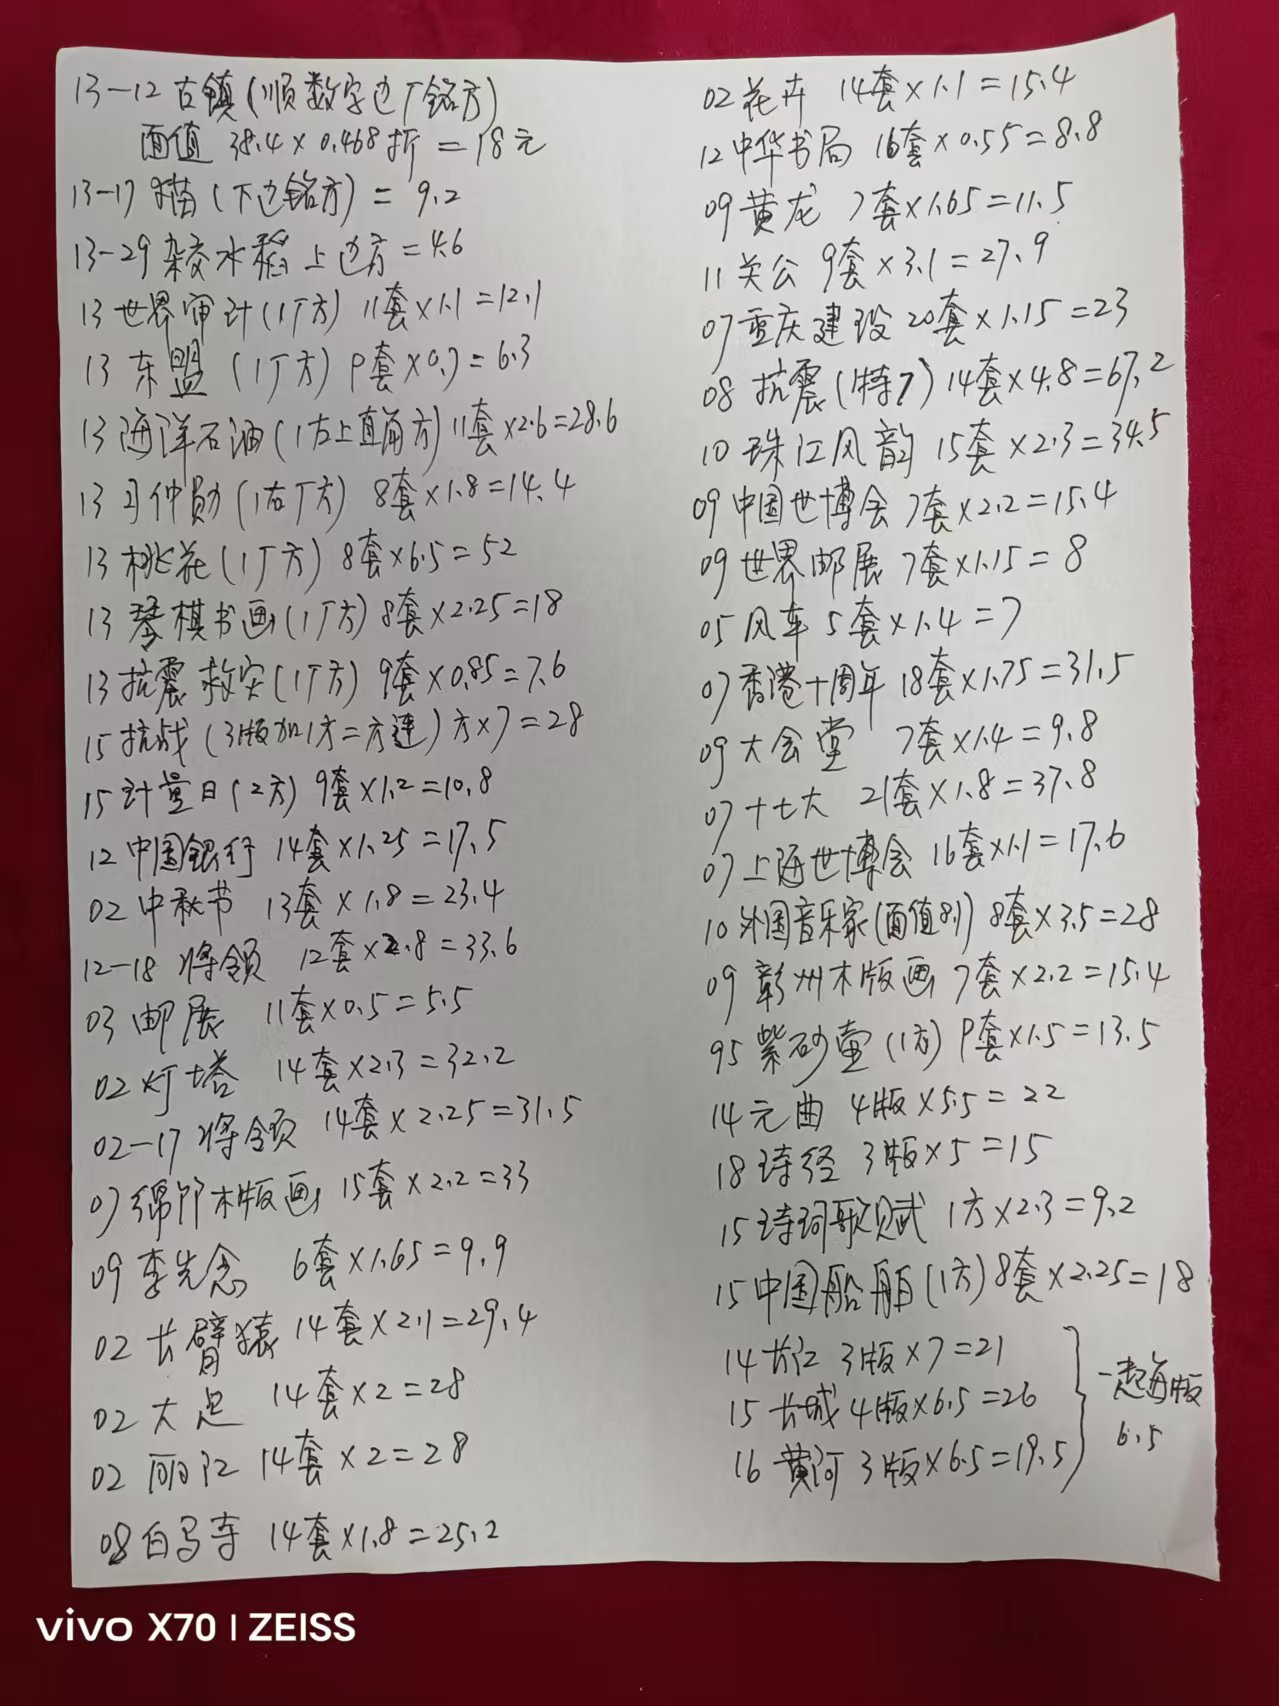 13-12 古镇(顺数字边厂铭方)
面值 38.4×0.468折=18元
13-17 猫(下边铭方)= 9.2
13-29 杂交水稻上边方=4.6
13 世界审计(1厂方) 11套×1.1=12.1
13 东盟 (1厂方) 9套×0.7=6.3
13 海洋石油(1右上直角方)11套×2.6=28.6
13 习仲勋(1右厂方) 8套×1.8=14.4
13 桃花(1厂方) 8套×6.5=52
13 琴棋书画(1厂方)8套×2.25=18
13 抗震救灾(1厂方) 9套×0.85=7.6
15 抗战(3版加1方二方连)方×7=28
15 计量日(2方) 9套×1.2=10.8
12 中国银行 14套×1.25=17.5
02 中秋节 13套×1.8=23.4
12-18 将领 12套×2.8=33.6
03 邮展 11套×0.5=5.5
02 灯塔 14套×2.3=32.2
02-17 将领 14套×2.25=31.5
07 绵竹木版画 15套×2.2=33
09 李先念 6套×1.65=9.9
02 长臂猿 14套×2.1=29.4
02 大足 14套×2=28
02 丽江 14套×2=28
08 白马寺 14套×1.8=25.2
02 花卉 14套×1.1=15.4
12 中华书局 16套×0.55=8.8
09 黄龙 7套×1.65=11.5
11 关公 9套×3.1=27.9
07 重庆建设 20套×1.15=23
08 抗震(特7)14套×4.8=67.2
10 珠江风韵 15套×2.3=34.5
09 中国世博会 7套×2.2=15.4
09 世界邮展 7套×1.15=8
05 风车 5套×1.4=7
07 香港十周年 18套×1.75=31.5
09 大会堂 7套×1.4=9.8
07 十七大 21套×1.8=37.8
07 上海世博会 16套×1.1=17.6
10 外国音乐家(面值8.1) 8套×3.5=28
09 彰州木版画 7套×2.2=15.4
95 紫砂壶(1方) 9套×1.5=13.5
14 元曲 4版×5.5=22
18 诗经 3版×5=15
15 诗词歌赋 1方×2.3=9.2
15 中国船舶(1方)8套×2.25=18
14 长江 3版×7=21
15 长城 4版×6.5=26
16 黄河 3版×6.5=19.5
一起每版
6.5
vivo X70 | ZEISS